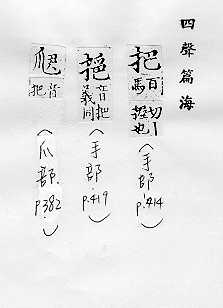 四聲篇海
把 百馬切也（手部 p.414）
音把義同（手部 p.419）
音把（爪部 p.382）